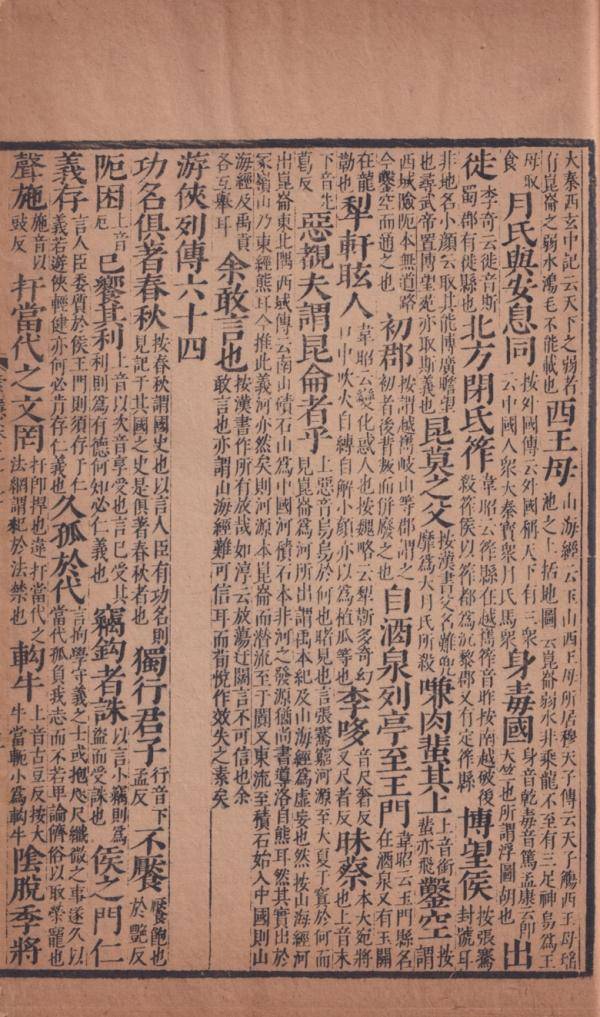 大秦西玄中記云天下之弱者有崑崙之弱水鴻毛不能載也西王母山海經云玉山西王母所居穆天子傳云天子觴西王母瑶池之上括地圖云崑崙弱水非乘龍不至有三足神烏爲王
母取食月氏與安息同按外國傳云外國稱天下有三衆云中國人衆大秦寳衆月氏馬衆身毒國身音乾毒音篤孟康云即天竺也所謂浮圖胡也出
徙李奇云徙音斯蜀郡有徙縣也北方閉氏筰韋昭云筰縣在越嶲筰音昨按南越破後殺筰侯以筰都爲沉黎郡又有定筰縣博望侯按張騫封號耳
非地名小顔云取其能博廣瞻望也尋武帝置博望苑亦取斯義也昆莫之父按漢書父名難兜靡爲大月氏所殺嗛肉蜚其上上音銜蜚亦飛鑿空按謂
西域險阨本無道路今鑿空而通之也初郡按謂越嶲岐山等郡謂之初者後背叛而併廢之也自酒泉列亭至玉門韋昭云玉門縣名在酒泉又有玉關
在龍勒也犁軒眩人韋昭云變化惑人也按魏略云犁靳多奇幻口中吹火自縛自解小顔亦以爲植瓜等也李哆音尺奢反又尺者反昧蔡本大宛將也上音末
下音先葛反惡覩夫謂昆侖者乎上惡音烏烏於何也睹見也言張騫窮河源至大夏于窴於何而見崑崙爲河所出謂禹本紀及山海經爲虚妄也然按山海經河
出崑崙東北隅西域傳云南山磧石山爲中國河積石本非河之發源猶尚書導洛自熊耳然其實出於冢嶺山乃東經熊耳今推此義河亦然矣則河源本崑崙而潛流至于闐又東流至積石始入中國則山
海經及禹貢各互舉耳余敢言也按漢書作所有放哉如淳云放蕩迂闊言不可信也余敢言也亦謂山海經難可信耳而荀悅作效失之素矣
游俠列傳六十四
功名俱著春秋按春秋謂國史也以言人臣有功名則見記于其國之史是俱著春秋者也獨行君子行音下孟反不饜饜飽也於艷反
阨困上音厄已饗其利上音以饗音享受也言已受其利則爲有德何知必仁義也竊鈎者誅以言小竊則爲盜而受誅也侯之門仁
義存言人臣委質於侯王門則須存于仁義若遊俠輕健亦何必肯存仁義也久孤於代言拘學守義之士或抱咫尺纎微之事遂久以當代孤負我志而不若卑論儕俗以取榮寵也
聲施施音以豉反扞當代之文罔扞即捍也違扞當代之法網謂犯於法禁也軥牛上音古豆反按大牛當軛小爲軥牛陰脫季將